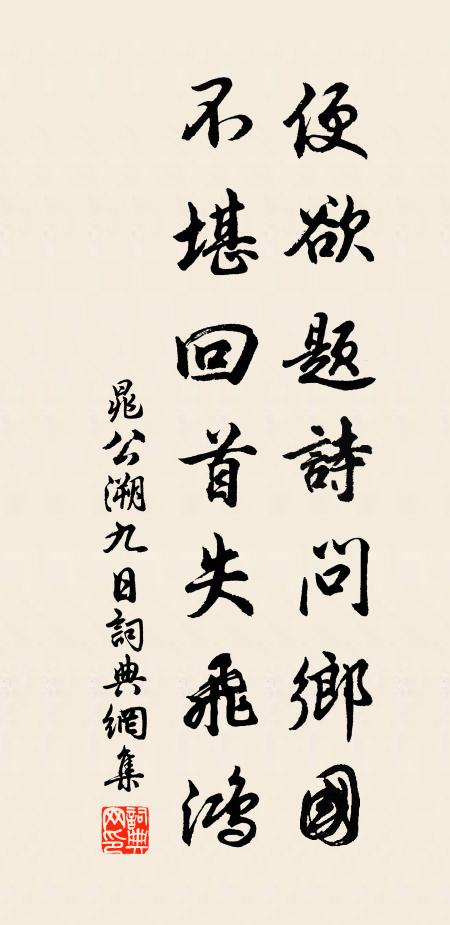 便欲題詩問鄉國
不堪回首失飛鴻
晁公溯九日詞典網集
詞典網印